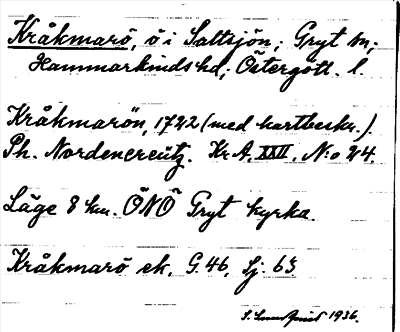 Kråkmarö, ö i Saltsjön; Gryt sn;
Hammarkinds hd; Östergötl. l.
Kråkmarön, 1722 (med kartbeskr.)
Ph. Nordencreutz. Kr.A. XXII, N:o 24.
Läge 8 km. ÖNÖ Gryt kyrka.
Kråkmarö ek. G. 46, Sj: 63
1936.